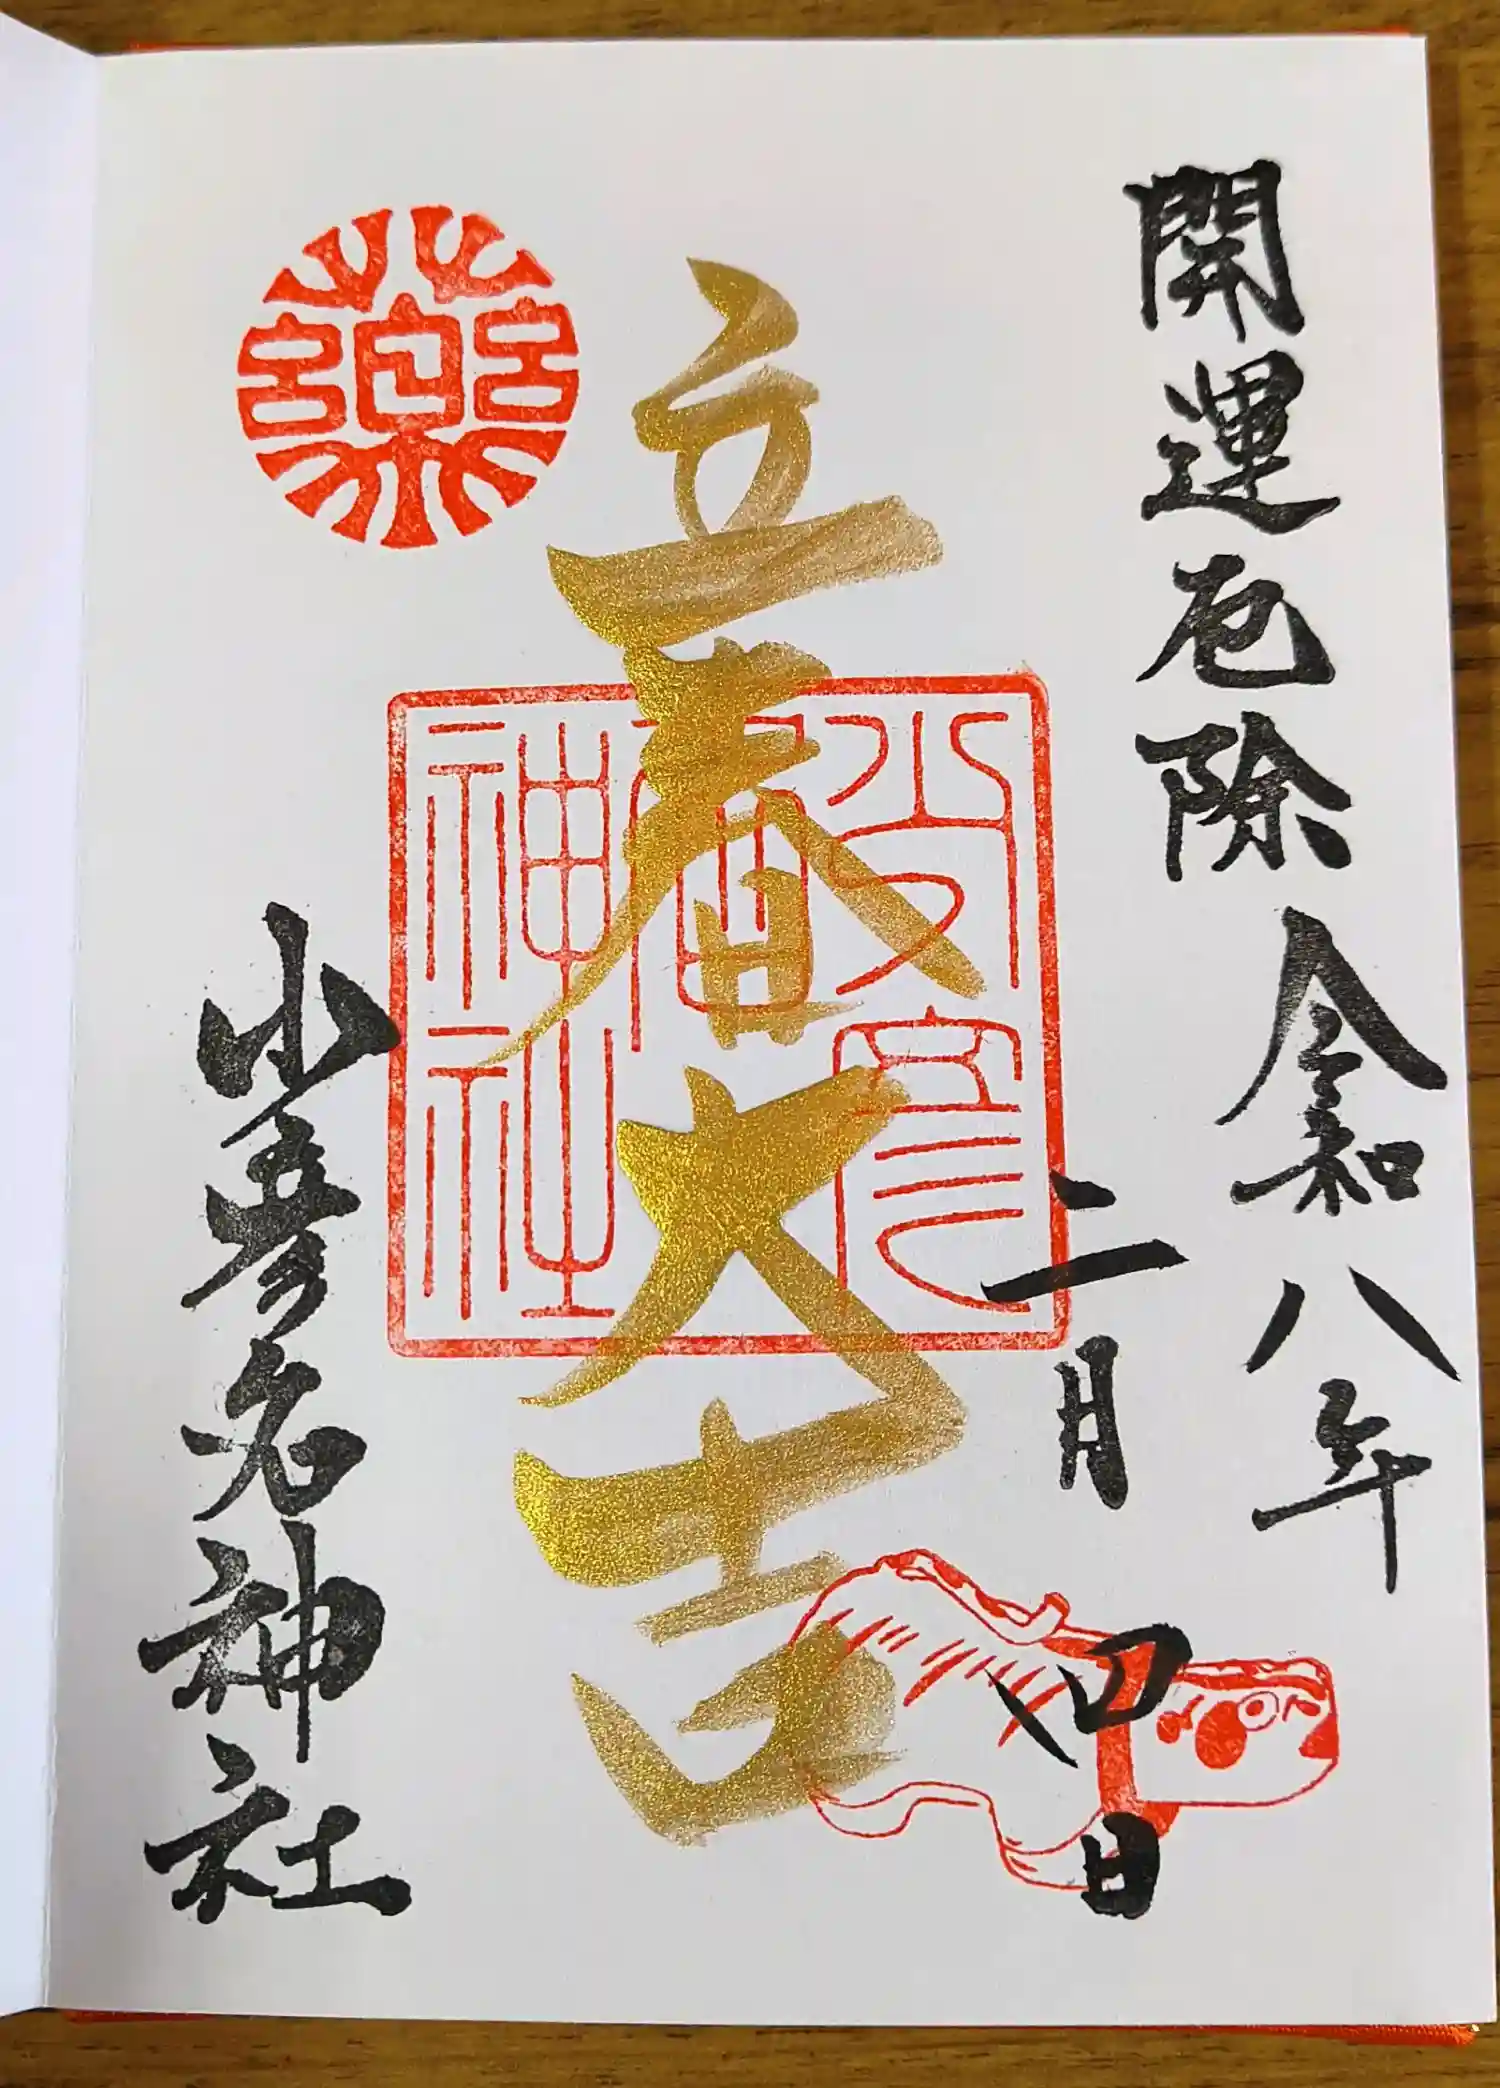 開運厄除
令和八年
二月四日
立春大吉
少彦
神社
藥
少彦名神社